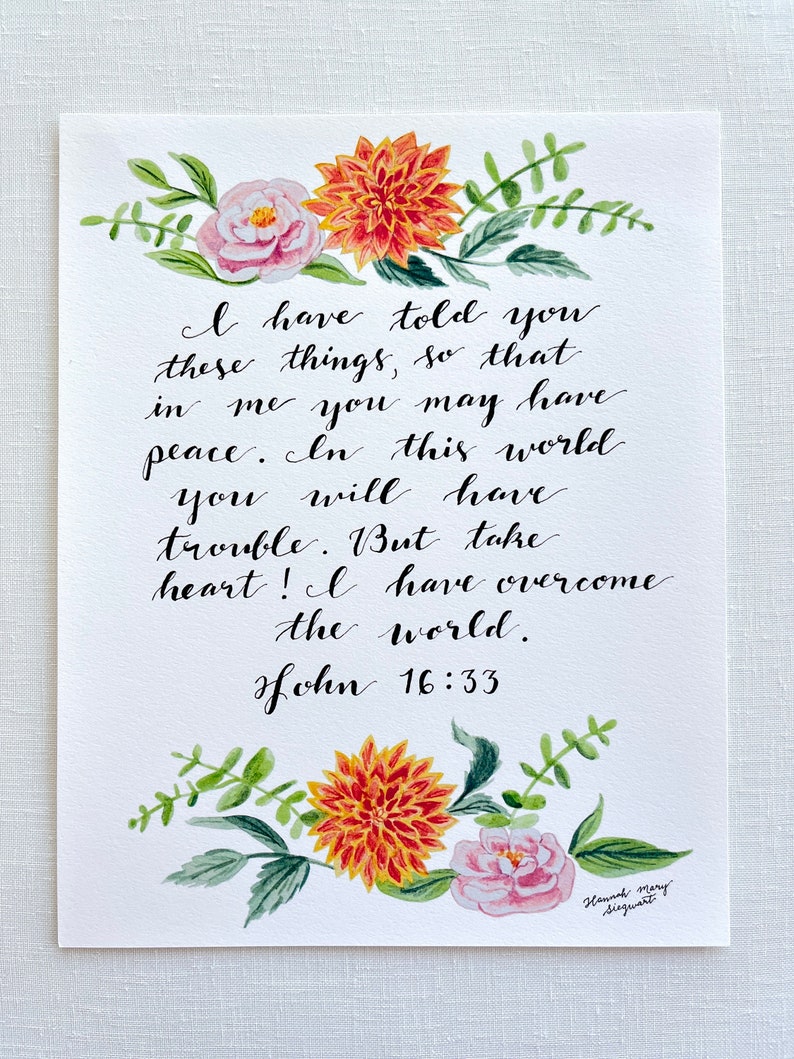 I have told you
these things, so that
in me you may have
peace. In this world
you will have
trouble. But take
heart! I have overcome
the world.
John 16:33
Hannah Mary
Siegwart